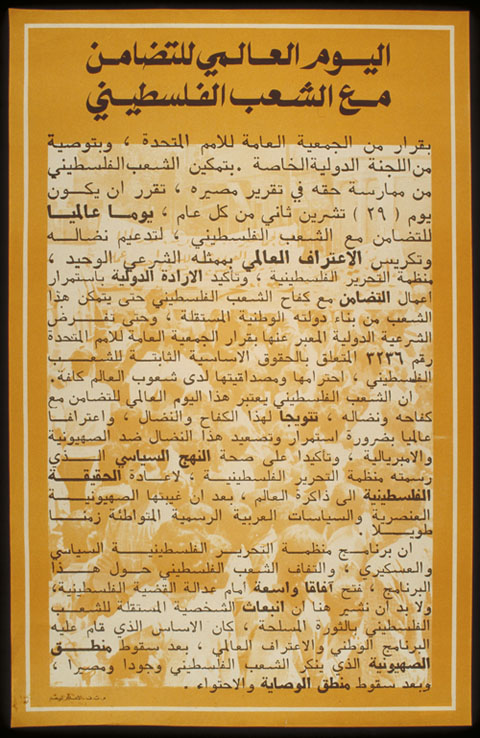 اليوم العالمي للتضامن
مع الشعب الفلسطيني
بقرار من الجمعية العامة للامم المتحدة ، وبتوصية
من اللجنة الدولية الخاصة . بتمكين الشعب الفلسطيني
من ممارسة حقه في تقرير مصيره ، تقرر ان يكون
يوم ( ٢٩ ) تشرين ثاني من كل عام ، يوما عالميا
للتضامن مع الشعب الفلسطيني ، لتدعيم نضاله
وتكريس الاعتراف العالمي بممثله الشرعي الوحيد ،
منظمة التحرير الفلسطينية ، وتأكيد الارادة الدولية باستمرار
اعمال التضامن مع كفاح الشعب الفلسطيني حتى يتمكن هذا
الشعب من بناء دولته الوطنية المستقلة ، وحتى تفرض
الشرعية الدولية المعبر عنها بقرار الجمعية العامة للامم المتحدة
رقم ٣٢٣٦ المتعلق بالحقوق الاساسية الثابتة للشعب
الفلسطيني ، احترامها ومصداقيتها لدى شعوب العالم كافة.
ان الشعب الفلسطيني يعتبر هذا اليوم العالمي للتضامن مع
كفاحه ونضاله ، تتويجا لهذا الكفاح والنضال ، واعترافا
عالميا بضرورة استمرار وتصعيد هذا النضال ضد الصهيونية
والامبريالية ، وتأكيدا على صحة النهج السياسي الذي
رسمته منظمة التحرير الفلسطينية ، لاعادة الحقيقة
الفلسطينية الى ذاكرة العالم ، بعد ان غيبتها الصهيونية
العنصرية والسياسات العربية الرسمية المتواطئة زمنا
طويلا .
ان برنامج منظمة التحرير الفلسطينية السياسي
والعسكري ، والتفاف الشعب الفلسطيني حول هذا
البرنامج ، فتح آفاقا واسعة أمام عدالة القضية الفلسطينية،
ولا بد أن نشير هنا ان انبعاث الشخصية المستقلة للشعب
الفلسطيني بالثورة المسلحة ، كان الاساس الذي قام عليه
البرنامج الوطني والاعتراف العالمي ، بعد سقوط منطق
الصهيونية الذي ينكر الشعب الفلسطيني وجودا ومصيرا ،
وبعد سقوط منطق الوصاية والاحتواء .